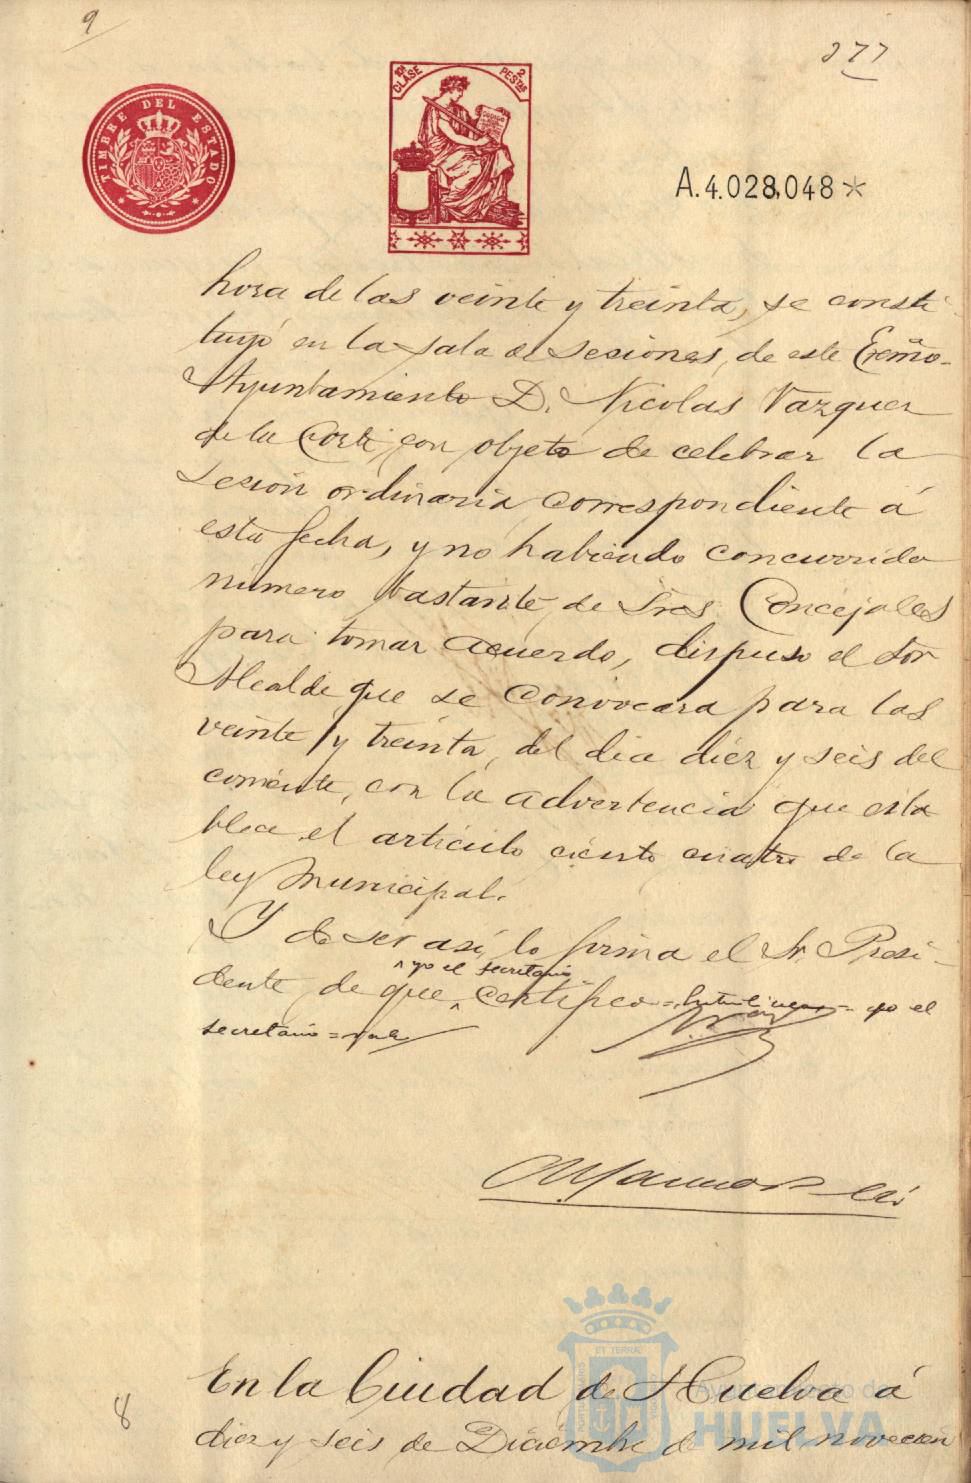 9
277
TIMBRE DEL ESTADO
10ª CLASE
2 PESTAS
A.4.028,048*
hora de las veinte y treinta, se consti
tuyó en la sala de Sesiones, de este Excmo
Ayuntamiento D. Nicolas Vazquez
de la Corte, con objeto de celebrar la
Sesión ordinaria correspondiente á
esta fecha, y no habiendo concurrido
número bastante de Sres. Concejales
para tomar acuerdo, dispuso el Sor
Alcalde que se convocara para las
veinte y treinta, del dia diéz y seis del
corriente, con la advertencia que esta
blece el articulo ciento cuatro de la
ley Municipal.
Y de ser asi, lo firma el Sr. Presi-
yo el secretario
dente de que certifico = Entrelineas = yo el
secretario = vale
En la Ciudad de Huelva á
8
diez y seis de Diciembre de mil novecien
ET TERRAE
Ayuntamiento de
HUELVA